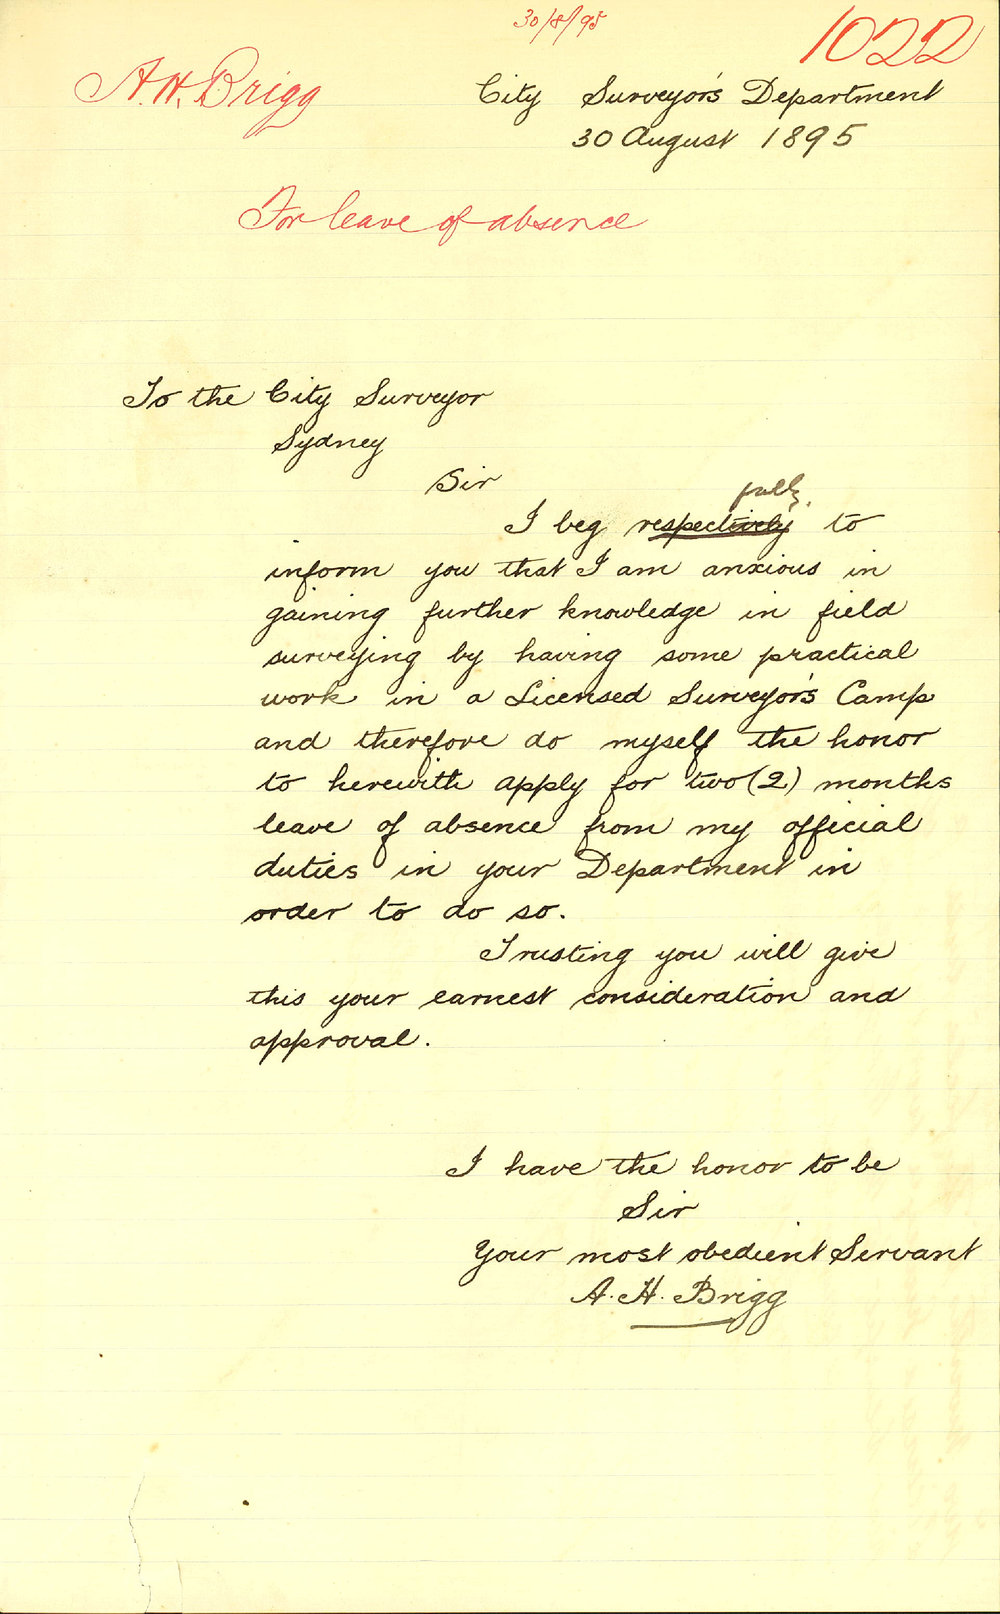 30/8/95
1022
A. H. Brigg
City Surveyor's Department
30 August 1895
For leave of absence
To the City Surveyor
Sydney
Sir
fully.
I beg respectively to
inform you that I am anxious in
gaining further knowledge in field
surveying by having some practical
work in a Licensed Surveyor's Camp
and therefore do myself the honor
to herewith apply for two (2) months
leave of absence from my official
duties in your Department in
order to do so.
Trusting you will give
this your earnest consideration and
approval.
I have the honor to be
Sir
Your most obedient Servant
A. H. Brigg